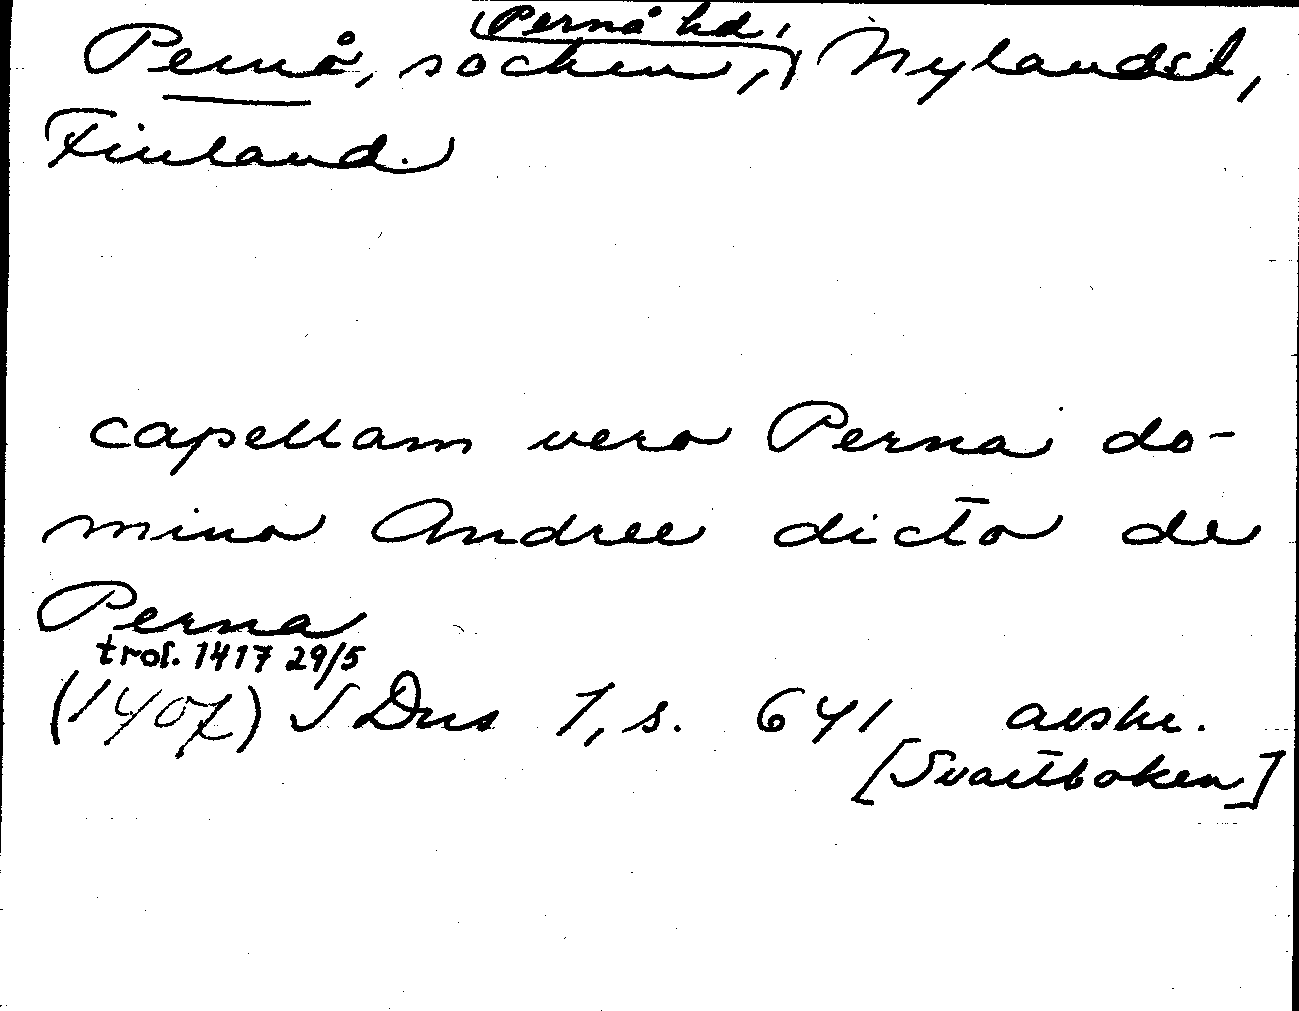 (Pernå hd,
Pernå, socken,) Nylands l,
Finland.
capellam vero Perna do-
mino Andree dicto de
Perna
trol. 1417 29/5
(1407) SDns 1, s. 641 avskr.
[Svartboken]